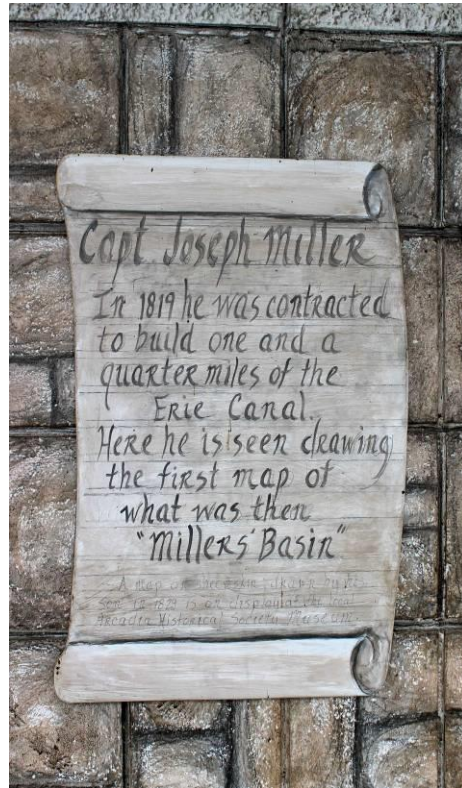 Capt Joseph Miller
In 1819 he was contracted
to build one and a
quarter miles of the
Erie Canal.
Here he is seen drawing
the first map of
what was then
"Millers' Basin"
A map
son in 1822 is on display at the local
Arcadia Historical Society Museum